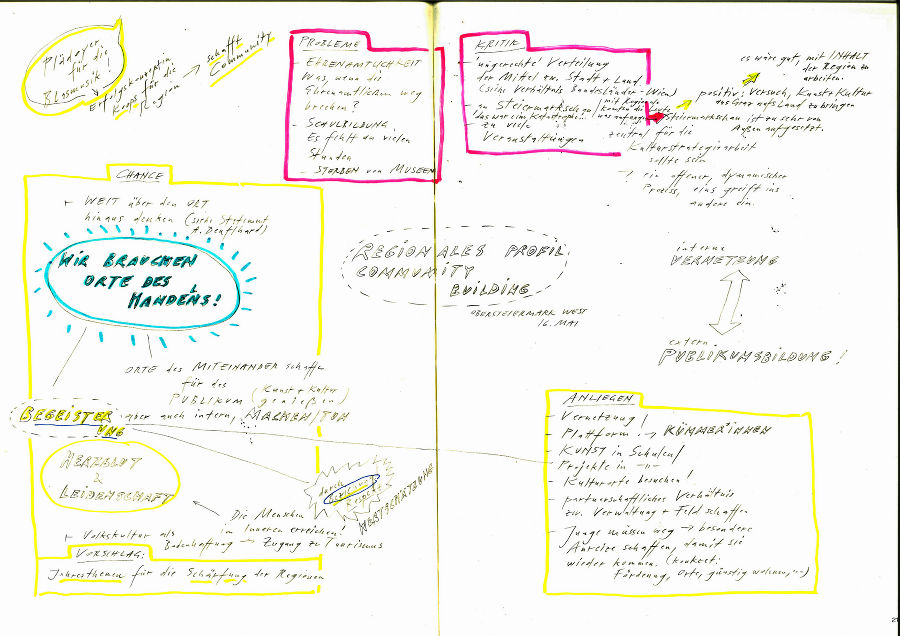 Plädoyer
für die
Blasmusik!
Erfolgskonzeption
Koops für die
Region
schafft
Community
PROBLEME
- EHRENAMTLICHKEIT
Was, wenn die
Ehrenamtlichen weg
brechen?
- SCHULBILDUNG
Es fehlt zu vielen
Stunden
- STERBEN von MUSEEN
KRITIK
- ungerechte Verteilung
der Mittel zw. Stadt + Land
(siehe Verhältnis Bundesländer - Wien)
- zu STEIERMARKSCHAU
(das war eine Katastrophe
mit Regional.
konnten die Leute
nix anfangen
- zu viele
Veranstaltungen
es wäre gut, mit INHALT
der Region zu
arbeiten.
positiv: Versuch, Kunst + Kultur
das Graz aufs Land zu bringen
Steiermarkschau ist zu sehr von
Außen aufgesetzt.
zentral für die
Kulturstrategiearbeit
sollte sein
→ ein offener, dynamischer
Prozess, eins greift ins
andere ein.
CHANCE
+ WEIT über den ORT
hinaus denken (siehe Statement
A. Deutlhard)
WIR BRAUCHEN
ORTE DES
HANDELNS!
ORTE des MITEINANDER schaffen
für das
PUBLIKUM (Kunst + Kultur
genießen)
aber auch intern, MACHEN/TUN
BEGEISTER
UNG
HERZBLUT
&
LEIDENSCHAFT
durch
WERTSCHÄTZUNG
Die Menschen
im Inneren erreichen!
+ Volkskultur als
Bodenhaftung → Zugang zu Tourismus
VORSCHLAG:
Jahresthemen für die Schärfung der Regionen
REGIONALES PROFIL
COMMUNITY
BUILDING
OBERSTEIERMARK WEST
16. MAI
interne
VERNETZUNG
extern
PUBLIKUMSBILDUNG!
ANLIEGEN
- Vernetzung!
- Plattform → KÜMMER*INNEN
- KUNST in Schulen!
- Projekte in -"-
- Kulturorte besuchen!
- partnerschaftliches Verhältnis
zw. Verwaltung + Feld schaffen
- Junge müssen weg → besondere
Anreize schaffen, damit sie
wieder kommen. (konkret:
Förderung, Orte, günstig wohnen, ...)